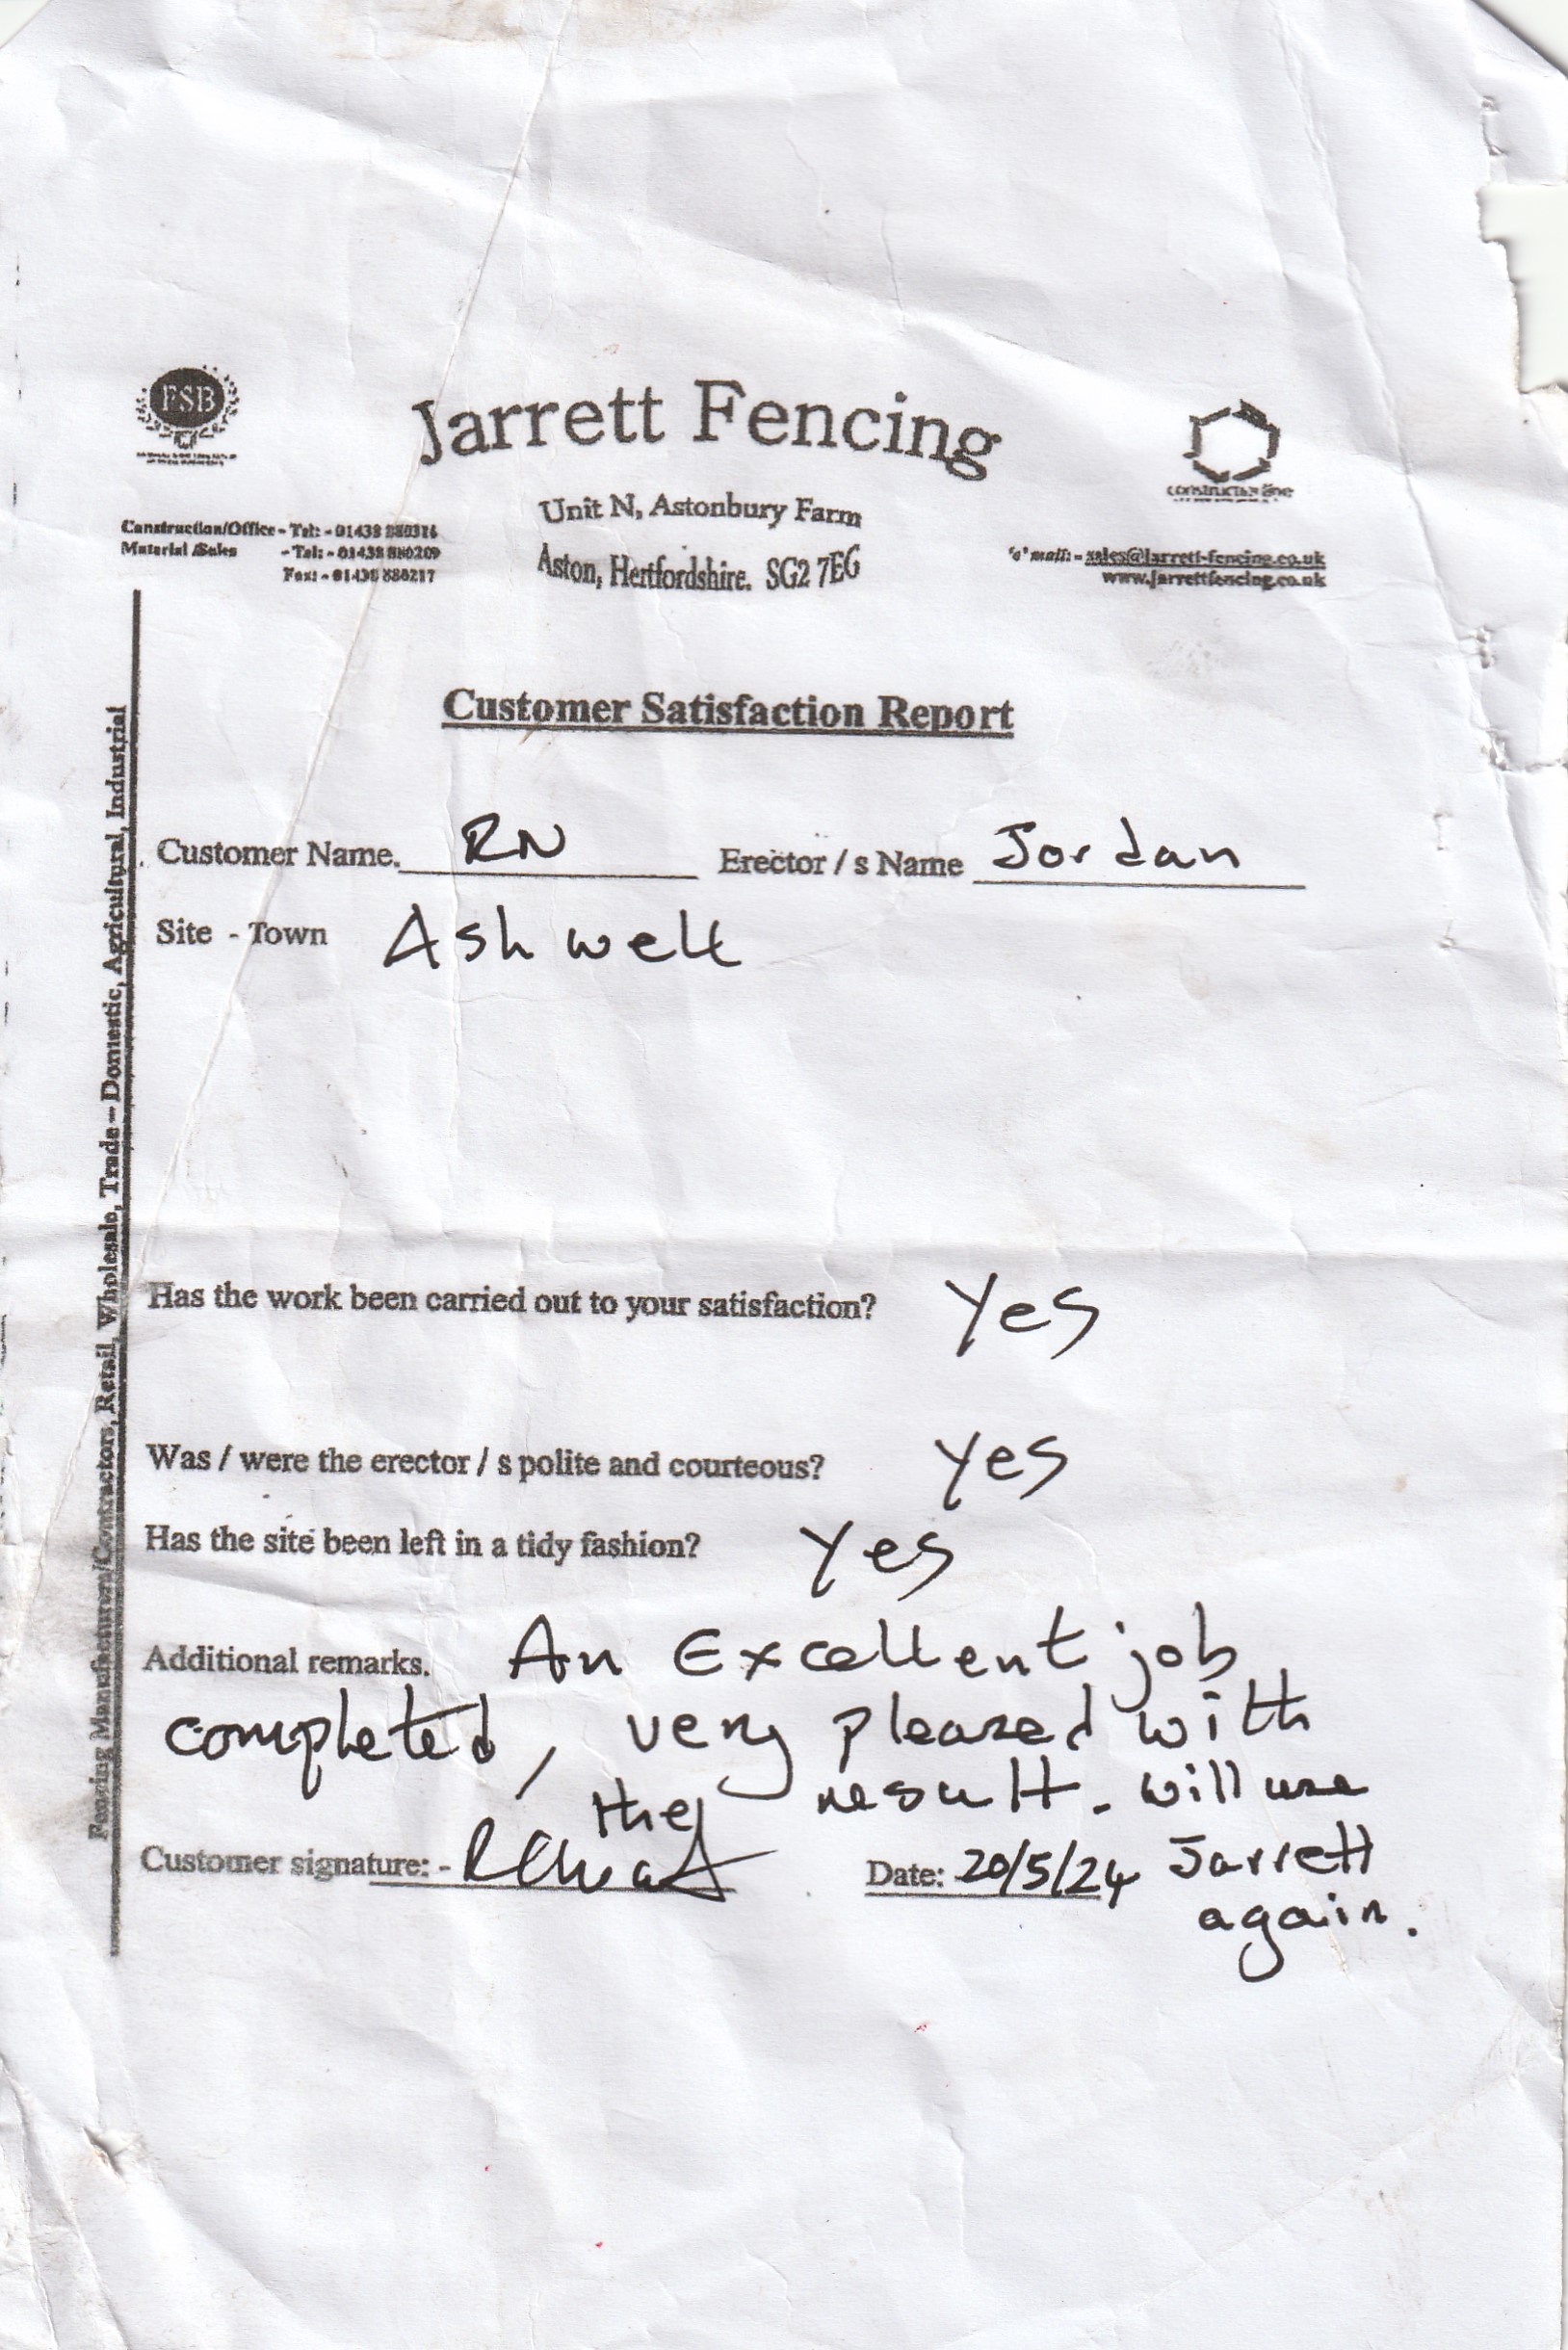 FSB
Jarrett Fencing
constructionline
Unit N, Astonbury Farm
Aston, Hertfordshire. SG2 7EG
Construction/Office - Tel: - 01438 880316
Material /Sales - Tel: - 01438 880209
Fax: - 01438 880217
'e' mail: - sales@jarrett-fencing.co.uk
www.jarrettfencing.co.uk
Fencing Manufacturers/Contractors, Retail, Wholesale, Trade – Domestic, Agricultural, Industrial
Customer Satisfaction Report
Customer Name. RN Erector / s Name Jordan
Site - Town Ashwell
Has the work been carried out to your satisfaction? Yes
Was / were the erector / s polite and courteous? Yes
Has the site been left in a tidy fashion? Yes
Additional remarks. An Excellent job
completed, very pleased with
the result. will use
Jarrett
again.
Customer signature: -
Date: 20/5/24